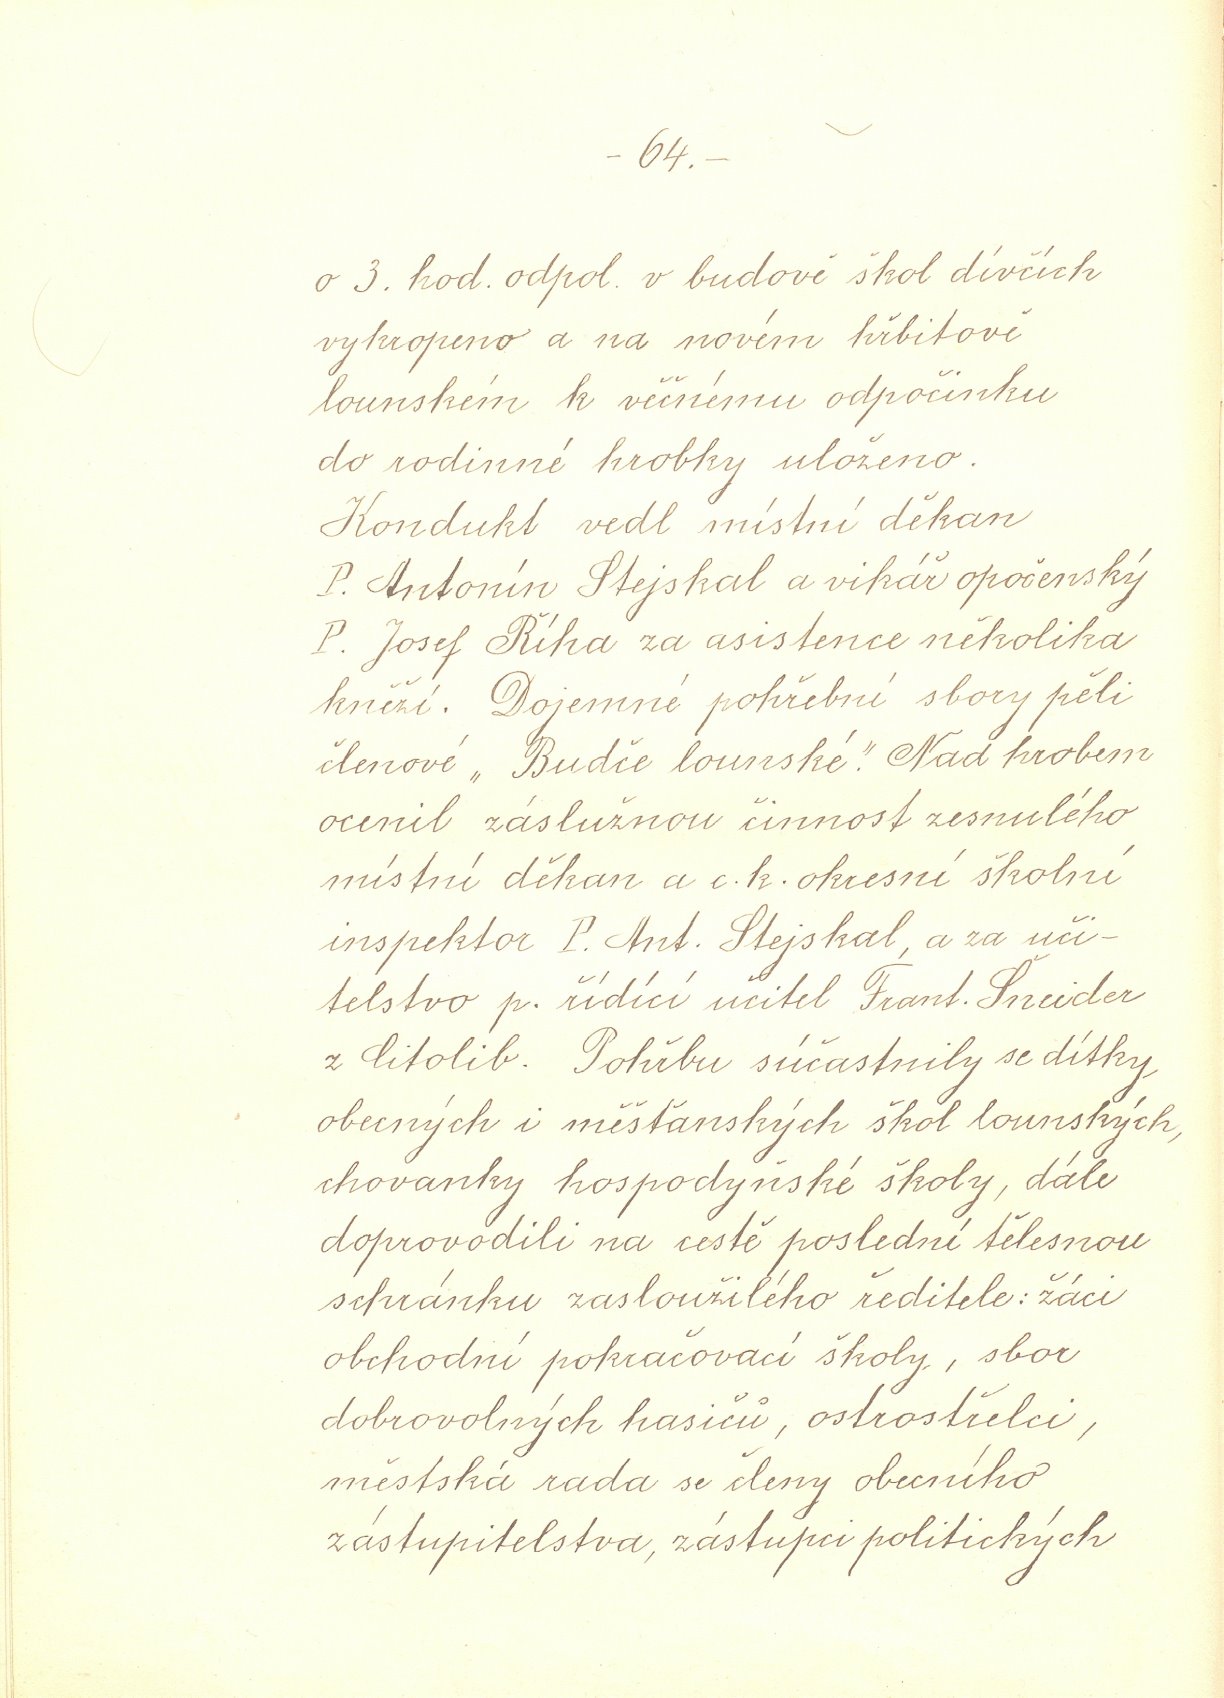 - 64. -
o 3. hod. odpol. v budově škol dívčích
vykropeno a na novém hřbitově
lounském k věčnému odpočinku
do rodinné hrobky uloženo.
Kondukt vedl místní děkan
P. Antonín Stejskal a vikář opočenský
P. Josef Říha za asistence několika
kněží. Dojemné pohřební sbory pěli
členové „Budče lounské". Nad hrobem
ocenil záslužnou činnost zesnulého
místní děkan a c. k. okresní školní
inspektor P. Ant. Stejskal, a za uči-
telstvo p. řídící učitel Frant. Šneider
z Citolib. Pohřbu súčastnily se dítky
obecných i měšťanských škol lounských,
chovanky hospodyňské školy, dále
doprovodili na cestě poslední tělesnou
schránku zasloužilého ředitele: žáci
obchodní pokračovací školy, sbor
dobrovolných hasičů, ostrostřelci,
městská rada se členy obecního
zástupitelstva, zástupci politických